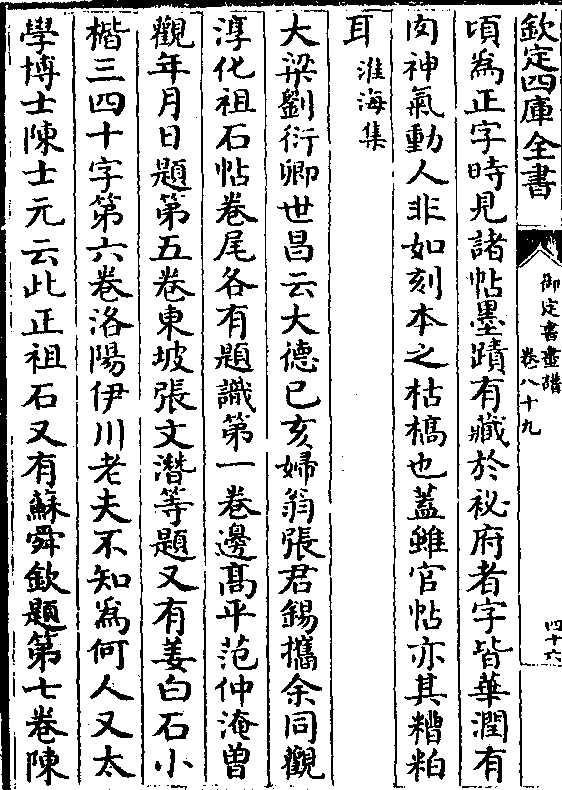 欽定四庫全書
御定書畫譜
卷八十九
四十六
頃為正字時見諸帖墨蹟有藏於祕府者字皆華潤有
肉神氣動人非如刻本之枯槁也蓋雖官帖亦其糟粕
耳淮海集
大梁劉衍卿世昌云大德己亥婦翁張君錫攜余同觀
淳化祖石帖卷尾各有題識第一卷邊髙平范仲淹曽
觀年月日題第五卷東坡張文潛等題又有姜白石小
楷三四十字第六卷洛陽伊川老夫不知為何人又太
學博士陳士元云此正祖石又有蘇舜欽題第七卷陳